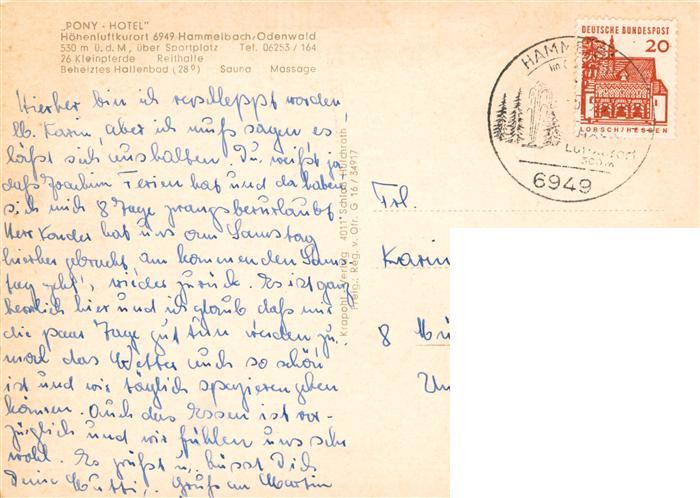 „PONY - HOTEL"
Höhenluftkurort 6949 Hammelbach/Odenwald
530 m ü. d. M, über Sportplatz Tel. 06253 / 164
26 Kleinpferde Reithalle
Beheiztes Hallenbad (28°) Sauna Massage
Hierher bin ich verschleppt worden
lb. Karin, aber ich muß sagen, es
läßt sich aushalten. Du weißt ja
daß Joachim Ferien hat und da haben
sie mich 8 Tage zwangsbeurlaubt.
Herr hat uns am Samstag
hierher gebracht, am kommenden Sams-
tag geht's wieder zurück. Es ist ganz
herrlich hier und ich glaub daß mir
die paar Tage gut tun werden zu-
mal das Wetter auch so schön
ist und wir täglich spazierengehen
können. Auch das Essen ist vor-
züglich und wir fühlen uns sehr
wohl. Es grüßt u. küsst Dich
Deine Mutti. Gruß an Martin
Krapohl-Verlag 4011 Schloß Hülchrath
Freig.: Reg. v. Ofr. G 16 / 34917
DEUTSCHE BUNDESPOST
20
LORSCH/HESSEN
Luftkurort
6949
Frl.
Karin
8 Mü